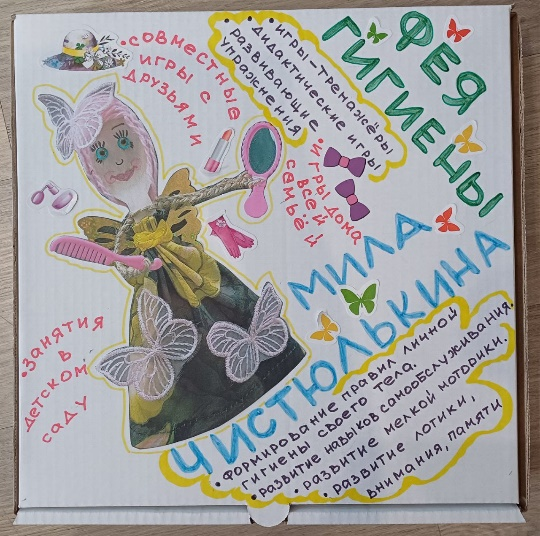 ФЕЯ
ГИГИЕНЫ
• игры-тренажёры
• дидактические игры
развивающие
упражнения
• совместные
игры с
друзьями
игры дома
всей
семьёй
МИЛА
ЧИСТЮЛЬКИНА
• занятия
в
детском
саду
• формирование правил личной
гигиены своего тела.
• развитие навыков самообслуживания.
• развитие мелкой моторики.
• развитие логики,
внимания, памяти